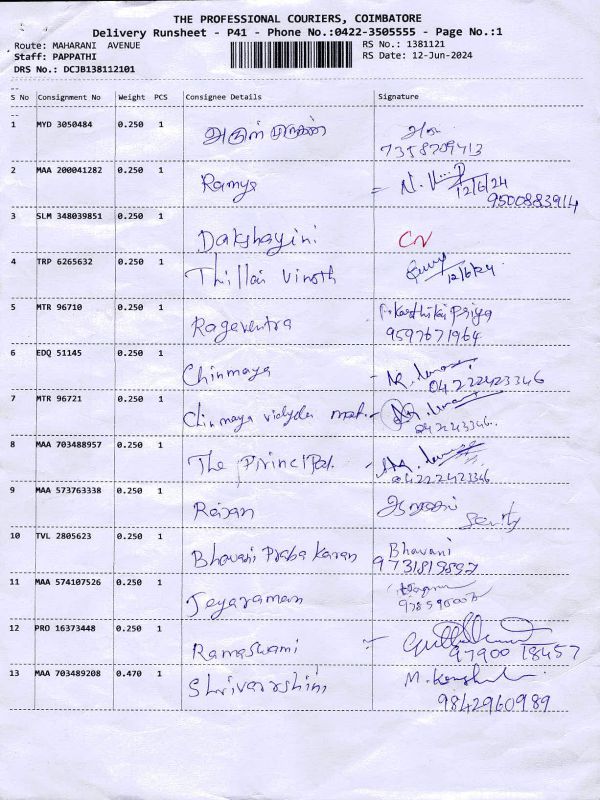 THE PROFESSIONAL COURIERS, COIMBATORE
Delivery Runsheet - P41 - Phone No.:0422-3505555 - Page No.:1
Route: MAHARANI AVENUE
RS No.: 1381121
Staff: PAPPATHI
RS Date: 12-Jun-2024
DRS No.: DCJB138112101
S No Consignment No Weight PCS Consignee Details Signature
1 MYD 3050484 0.250 1 அருள் முருகன்
7358709413
2 MAA 200041282 0.250 1 Ramya 12/6/24
9500883914
3 SLM 348039851 0.250 1 Dakshayini CN
4 TRP 6265632 0.250 1 Thillai Vinoth 12/6/24
5 MTR 96710 0.250 1 Rageventra
9597671964
6 EDQ 51145 0.250 1 Chinmaya
04222423346
7 MTR 96721 0.250 1 Chinmaya vidyala mat.
8 MAA 703488957 0.250 1 The Principal.
04222423346
9 MAA 573763338 0.250 1 Rajan
10 TVL 2805623 0.250 1 Bhavani Praba Karan Bhavani
9731815897
11 MAA 574107526 0.250 1 Jeyaraman
12 PRO 16373448 0.250 1 Ramaswami
97900 18457
13 MAA 703489208 0.470 1 Shrivarshini
9842960989